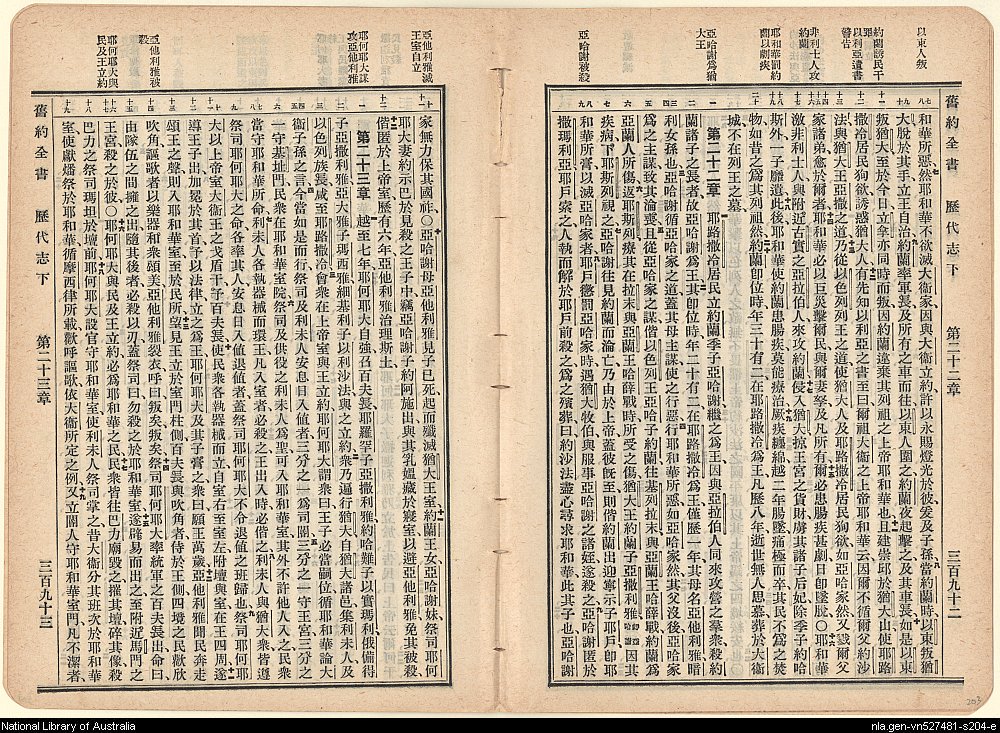 以東人叛
約蘭誘民干
罪
以利亞遺書
警告
非利士人攻
約蘭
耶和華罰約
蘭以劇疾
亞哈謝爲猶
大王
亞哈謝被殺
舊約全書 歷代志下 第二十二章 三百九十二
和華所惡然耶和華不欲滅大衛家因與大衛立約許以永賜燈光於彼爰及子孫當約蘭時以東叛猶
大脫於其手立王自治約蘭率軍長及所有之車而往以東人圍之約蘭夜起擊之及其車長如是以東
叛猶大至於今日立拿亦同時而叛因約蘭違棄其列祖之上帝耶和華也且建崇邱於猶大山使耶路
撒冷居民狥欲誘惑猶大人有先知以利亞之書至曰爾祖大衛之上帝耶和華云因爾不循爾父約沙
法與猶大王亞撒之道乃從以色列列王之道使猶大人及耶路撒冷居民狥欲如亞哈家然又戮爾父
家諸弟愈於爾者耶和華必以巨災擊爾民與爾妻孥及凡所有爾必患腸疾甚劇日卽墜脫〇耶和華
激非利士人與附近古實之亞拉伯人來攻約蘭侵入猶大掠王宮之貨財虜其諸子后妃除季子約哈
斯外一子靡遺此後耶和華使約蘭患腸疾莫能療治厥疾纏綿越二年腸墜痛極而卒其民不爲之焚
物如昔之爲其列祖然約蘭卽位時年三十有二在耶路撒冷爲王凡歷八年逝世無人思慕葬於大衛
城不在列王之墓
第二十二章 耶路撒冷居民立約蘭季子亞哈謝繼之爲王因與亞拉伯人同來攻營之羣衆殺約
蘭諸子之長者故亞哈謝爲王其卽位時年二十有二在耶路撒冷爲王僅歷一年其母名亞他利雅暗
利女孫也亞哈謝循亞哈家之道蓋其母主謀使之行惡行耶和華所惡如亞哈家然其父沒後亞哈家
爲之主謀致其淪喪且從亞哈家之謀偕以色列王亞哈子約蘭往基列拉末與亞蘭王哈薛戰約蘭爲
亞蘭人所傷返耶斯列療其在拉末與亞蘭王哈薛戰時所受之傷猶大王約蘭子亞撒利雅因其
疾病下耶斯列視之亞哈謝往見約蘭而淪亡乃由於上帝蓋彼旣至則偕約蘭出迎寧示子耶戶卽耶
和華所膏以滅亞哈家者耶戶懲罰亞哈家時遇猶大牧伯與服事亞哈謝之諸姪遂殺之亞哈謝匿於
撒瑪利亞耶戶索之人執而解於耶戶前殺之爲之殯葬曰約沙法盡心尋求耶和華此其子也亞哈謝
亞他利雅滅
王室自立
耶何耶大謀
攻亞他利雅
亞他利雅被
殺
耶何耶大與
民及王立約
家無力保其國祚〇亞哈謝母亞他利雅見子已死起而殲滅猶大王室約蘭王女亞哈謝妹祭司耶何
耶大妻約示巴於見殺之王子中竊亞哈謝子約阿施出與其乳媼藏於寢室以避亞他利雅免其被殺
偕匿於上帝室歷有六年亞他利雅治理斯土
第二十三章 越至七年耶何耶大自强召百夫長耶羅罕子亞撒利雅約哈難子以實瑪利俄備得
子亞撒利雅亞大雅子瑪西雅細基利子以利沙法與之立約衆乃遍行猶大自猶大諸邑集利未人及
以色列族長咸至耶路撒冷會衆在上帝室與王立約耶何耶大謂衆曰王子必當嗣位循耶和華論大
衛子孫之言今當如是而行祭司及利未人安息日入値者三分之一爲司閽三分之一守王宮三分之
一守基址門民衆在耶和華室院祭司及供役之利未人爲聖可入耶和華室其外不許他人入之民衆
當守耶和華所命利未人各執器械而環王凡入室者必殺之王出入時必偕之利未人與猶大衆皆遵
祭司耶何耶大之命各率其人安息日入値退値者蓋祭司耶何耶大不令退値之班歸也祭司耶何耶
大以上帝室大衛王之戈盾干予百夫長使民衆各執器械而立自室右至室左附壇與室在王四周遂
導王子出加冕於其首予以法律立之爲王耶何耶大及其子膏之衆曰願王萬歲亞他利雅聞民奔走
頌王之聲則入耶和華室至於民所望見王立於室門柱側百夫長與吹角者侍於王側四境之民歡欣
吹角謳歌者以樂器和衆頌美亞他利雅裂衣呼曰叛矣叛矣祭司耶何耶大率統軍之百夫長出命曰
由隊伍之間擁之出隨其後者必殺以刃蓋祭司曰勿殺之於耶和華室遂辟易而出之至附近馬門之
王宮殺之於彼〇耶何耶大與民及王立約必爲耶和華之民民衆皆往巴力廟毀之摧其壇碎其像殺
巴力之祭司瑪坦於壇前耶何耶大設官守耶和華室使利未人祭司掌之昔大衛分其班次於耶和華
室使獻燔祭於耶和華循摩西律所載歡呼謳歌依大衛所定之例又立閽人守耶和華室門凡不潔者
舊約全書 歷代志下 第二十三章 三百九十三
203
National Library of Australia
nla.gen-vn527481-s204-e